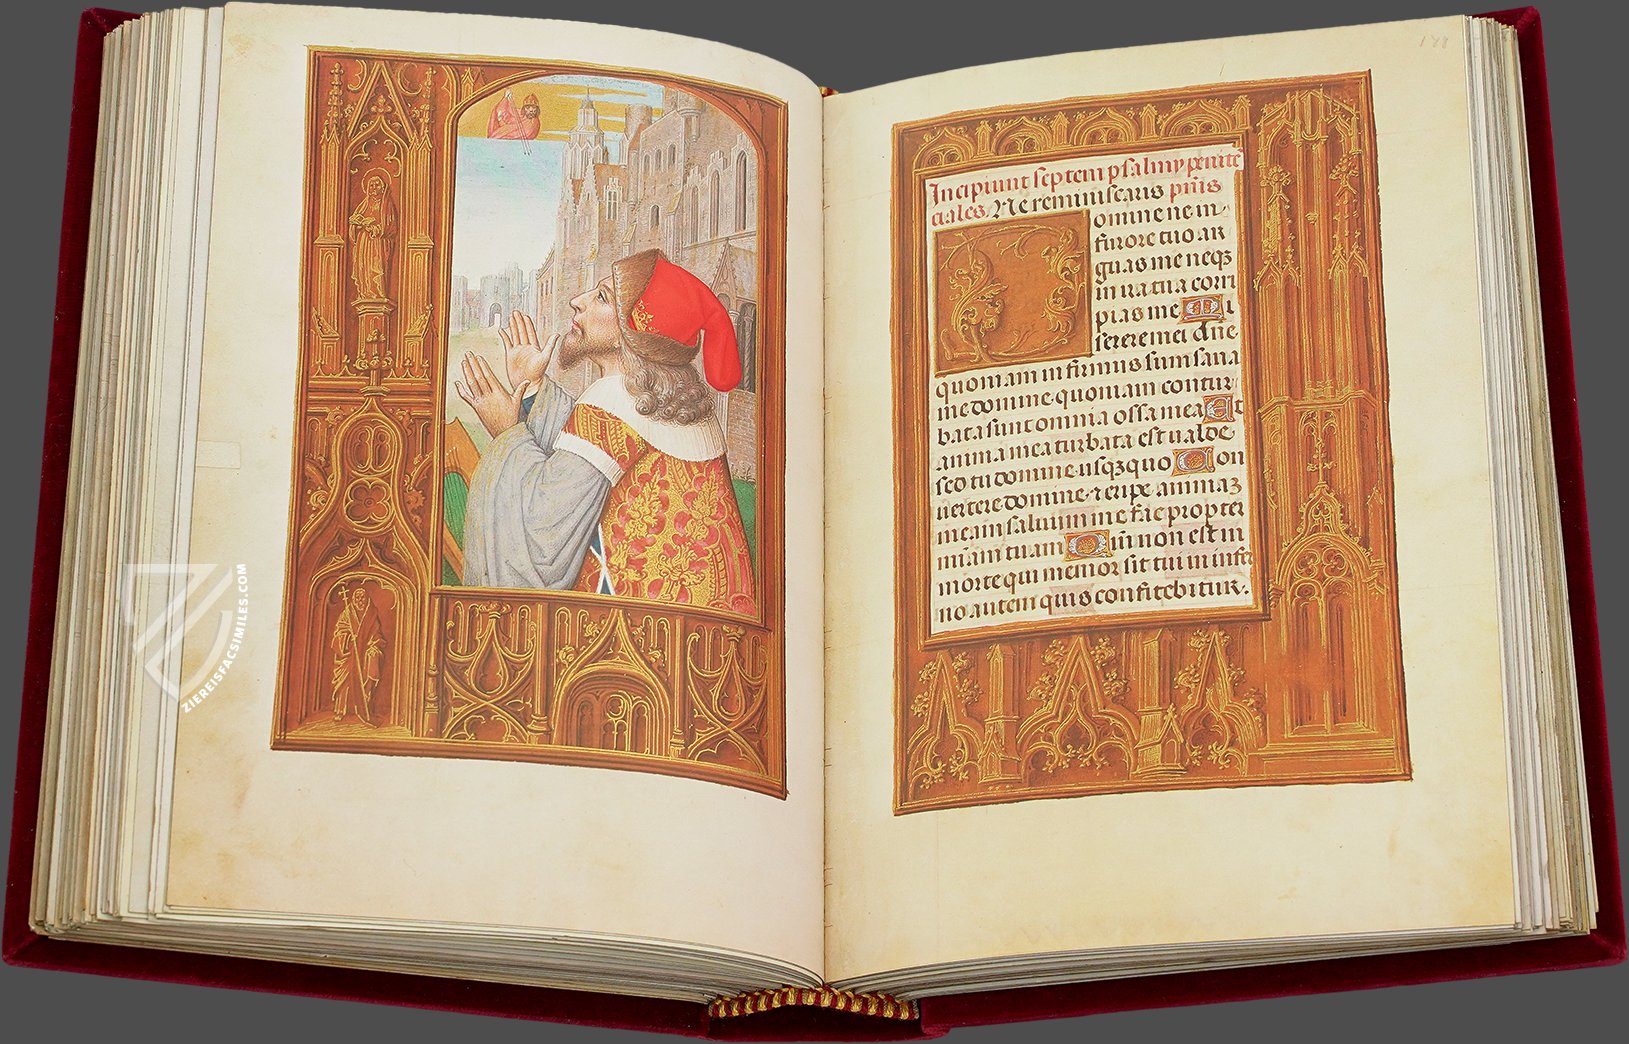 ZIEREISFACSIMILES.COM
181
Incipiunt septem psalmy penitē
ciales. Ne reminiscaris psm̄s
Domine ne in
furore tuo ar
guas me neqꝫ
in ira tua corri
pias me Mi
serere mei dn̄e
quoniam infirmus sum sana
me domine quoniam contur
bata sunt omnia ossa mea Et
anima mea turbata est valde
sed tu domine usqꝫquo Con
vertere domine ⁊ eripe animaꝫ
meam salvum me fac propter
mīam tuam Qm̄ non est in
morte qui memor sit tui in infer
no autem quis confitebitur.